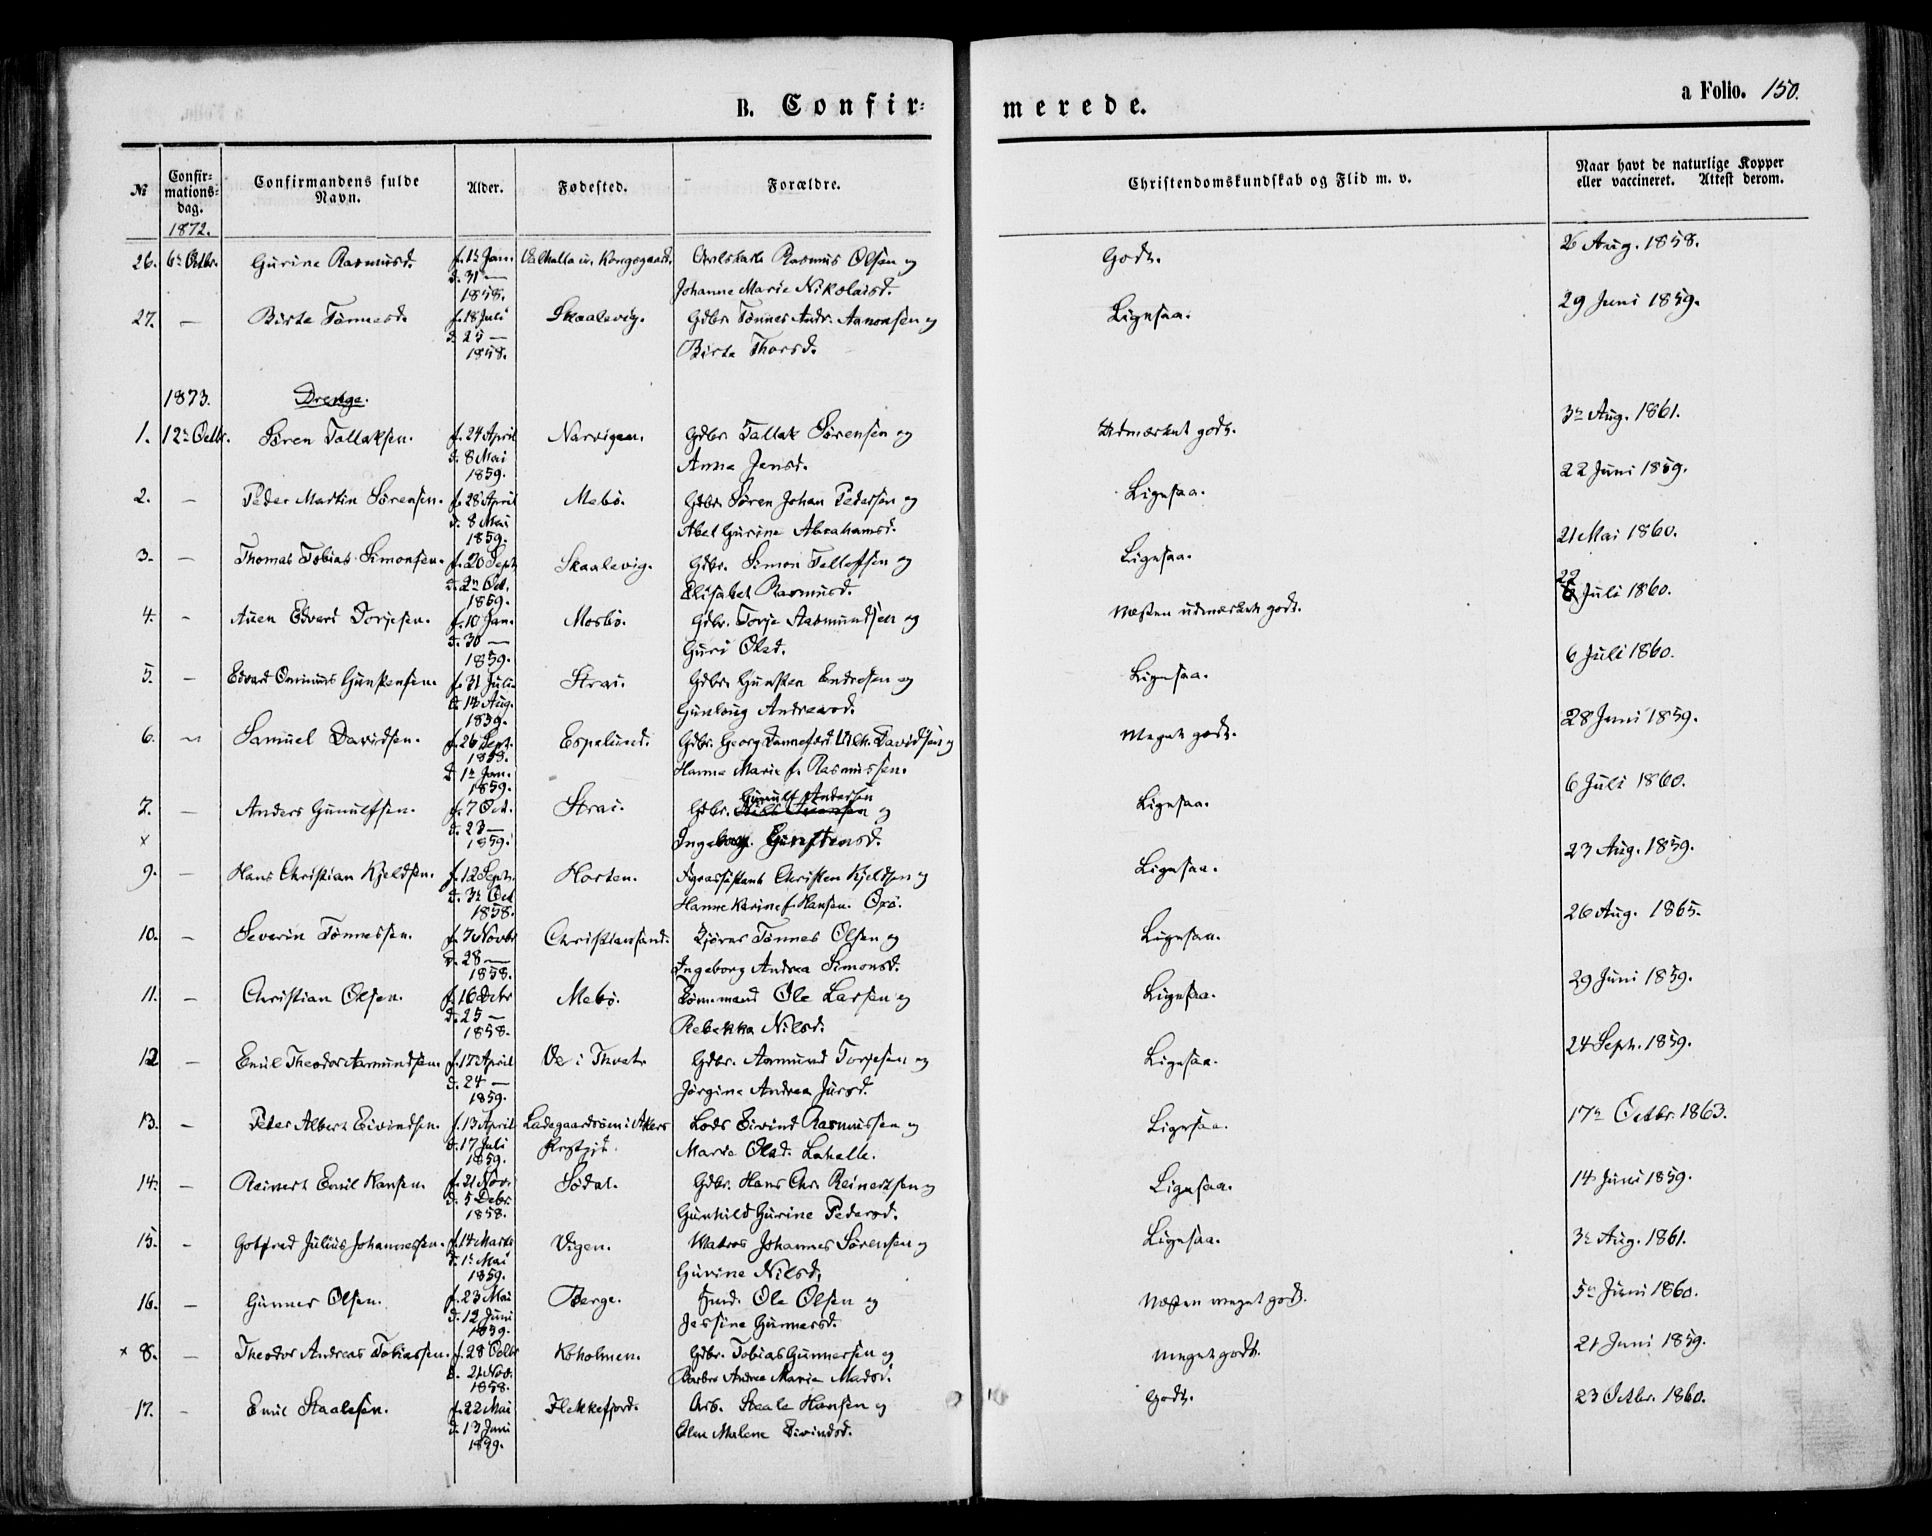 B. Confir-
merede.
a Folio. 150.
№
Confirmations-dag.
Confirmandens fulde Navn.
Alder.
Fødested.
Forældre.
Christendomskundskab og Flid m. v.
Naar havt de naturlige Kopper eller vaccineret. Attest derom.
1872.
26. 6te Octbr. Gurine Rasmusd. f. 1ste Jan. Valhalla u. Kongsgaard. Rasmus Olsen og Godt. 26 Aug. 1858.
d. 31 — Johanne Marie Nikolaisd.
1858.
27. — Birte Tønnesd. f. 18 Juli Skaalevig. Gdbr. Tønnes Andr. Aanonsen og Ligesaa. 29 Juni 1859.
d. 25 — Birte Thorsd.
1858.
1873. Drenge.
1. 12te Octbr. Søren Tallaksen. f. 24 April Narvigen. Gdbr. Tallak Sørensen og Udmærket godt. 3die Aug. 1861.
d. 8 Mai Anna Jensd.
1859.
2. — Peder Martin Sørensen. f. 28 April Mebø. Gdbr. Søren Johan Pedersen og Ligesaa. 22 Juni 1859.
d. 8 Mai Abel Gurine Abrahamsd.
1859.
3. — Thomas Tobias Simonsen. f. 20 Sept. Skaalevig. Gdbr. Simon Tellefsen og Ligesaa. 21 Mai 1860.
d. 2den Oct. Elisabet Rasmusd.
1859.
4. — Auen Edvard Torjesen. f. 10 Jan. Mosbø. Gdbr. Torje Aasmundsen og Næsten udmærket godt. 22 Juli 1860.
d. 30 — Guri Olsd.
1859.
5. — Edvard Gunstensen. f. 31 Juli Strai. Gdbr. Gunsten Endresen og Ligesaa. 6 Juli 1860.
d. 14 Aug. Gunloug Andreasd.
1859.
6. — Samuel Davidsen. f. 26 Sept. Espelund. Gdbr. Georg Dannefærd Vilh. Davidsen og Meget godt. 28 Juni 1859.
1858.
d. 1ste Jan. Hanne Marie f. Rasmussen.
1859.
7. — Anders Gunulfsen. f. 7 Oct. Strai. Gdbr. Gunulf Andersen og Ligesaa. 6 Juli 1860.
d. 23 — Ingeborg Gunstensd.
× 1859.
9. — Hans Christian Kjeldsen. f. 12 Sept. Horten. Fyrassistent Christen Kjeldsen og Ligesaa. 23 Aug. 1859.
d. 3die Oct. Hanne Karine f. Hansen. Oxø.
1858.
10. — Severin Tønnessen. f. 7 Novbr Christianssand. Tønnes Olsen og Ligesaa. 26 Aug. 1865.
d. 28 — Ingeborg Andrea Simonsd.
1858.
11. — Christian Olsen. f. 16 Decbr Mebø. Tømmermand Ole Larsen og Ligesaa. 29 Juni 1859.
d. 25 — Rebekka Nilsd.
1858.
12 — Emil Theodor Aamundsen. f. 17 April Ve i Thvet. Gdbr. Aamund Torjesen og Ligesaa. 24 Sept. 1859.
d. 24 — Jørgine Andrea Jursd.
1859.
13. — Peter Albert Eivindsen. f. 13 April Ladegaardsøen i Akers Lods Eivind Rasmussen og Ligesaa. 17de Octbr. 1863.
d. 17 Juli Præstgjd. Marie Olsd. Lahelle.
1859.
14. — Reinert Emil Hansen. f. 21 Nov. Sødal. Gdbr. Hans Chr. Reinertsen og Ligesaa. 14 Juni 1859.
d. 5 Decbr. Gunhild Gurine Pedersd.
1858.
15. — Gotfred Julius Johannessen. f. 14 Marts Vigen. Matros Johannes Sørensen og Ligesaa. 3die Aug. 1861.
d. 1ste Mai Gurine Nilsd.
1859.
16. — Gunner Olsen. f. 23 Mai Berge. Ole Olsen og Næsten meget godt. 5te Juni 1860.
d. 12 Juni Jessine Gunnersd.
1859.
× 8. — Theodor Andreas Tobiassen. f. 28 Octbr Koholmen. Gdbr. Tobias Gunnersen og Meget godt. 21 Juni 1859.
d. 21 Nov. Barbro Andrea Marie Madsd.
1858.
17. — Emil Staalesen. f. 22 Mai Flekkefjord. Arb. Staale Hansen og Godt. 23 Octbr. 1860.
d. 13 Juni Malene Eivindsd.
1859.